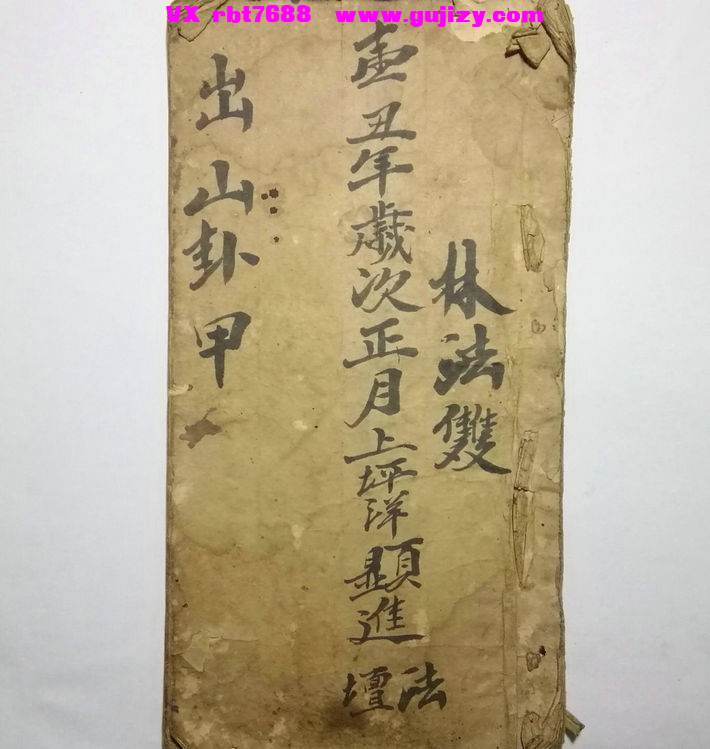 VX rbt7688 www.gujizy.com
林法雙
壶丑年歲次正月上坪洋顕進
法壇
出山卦甲